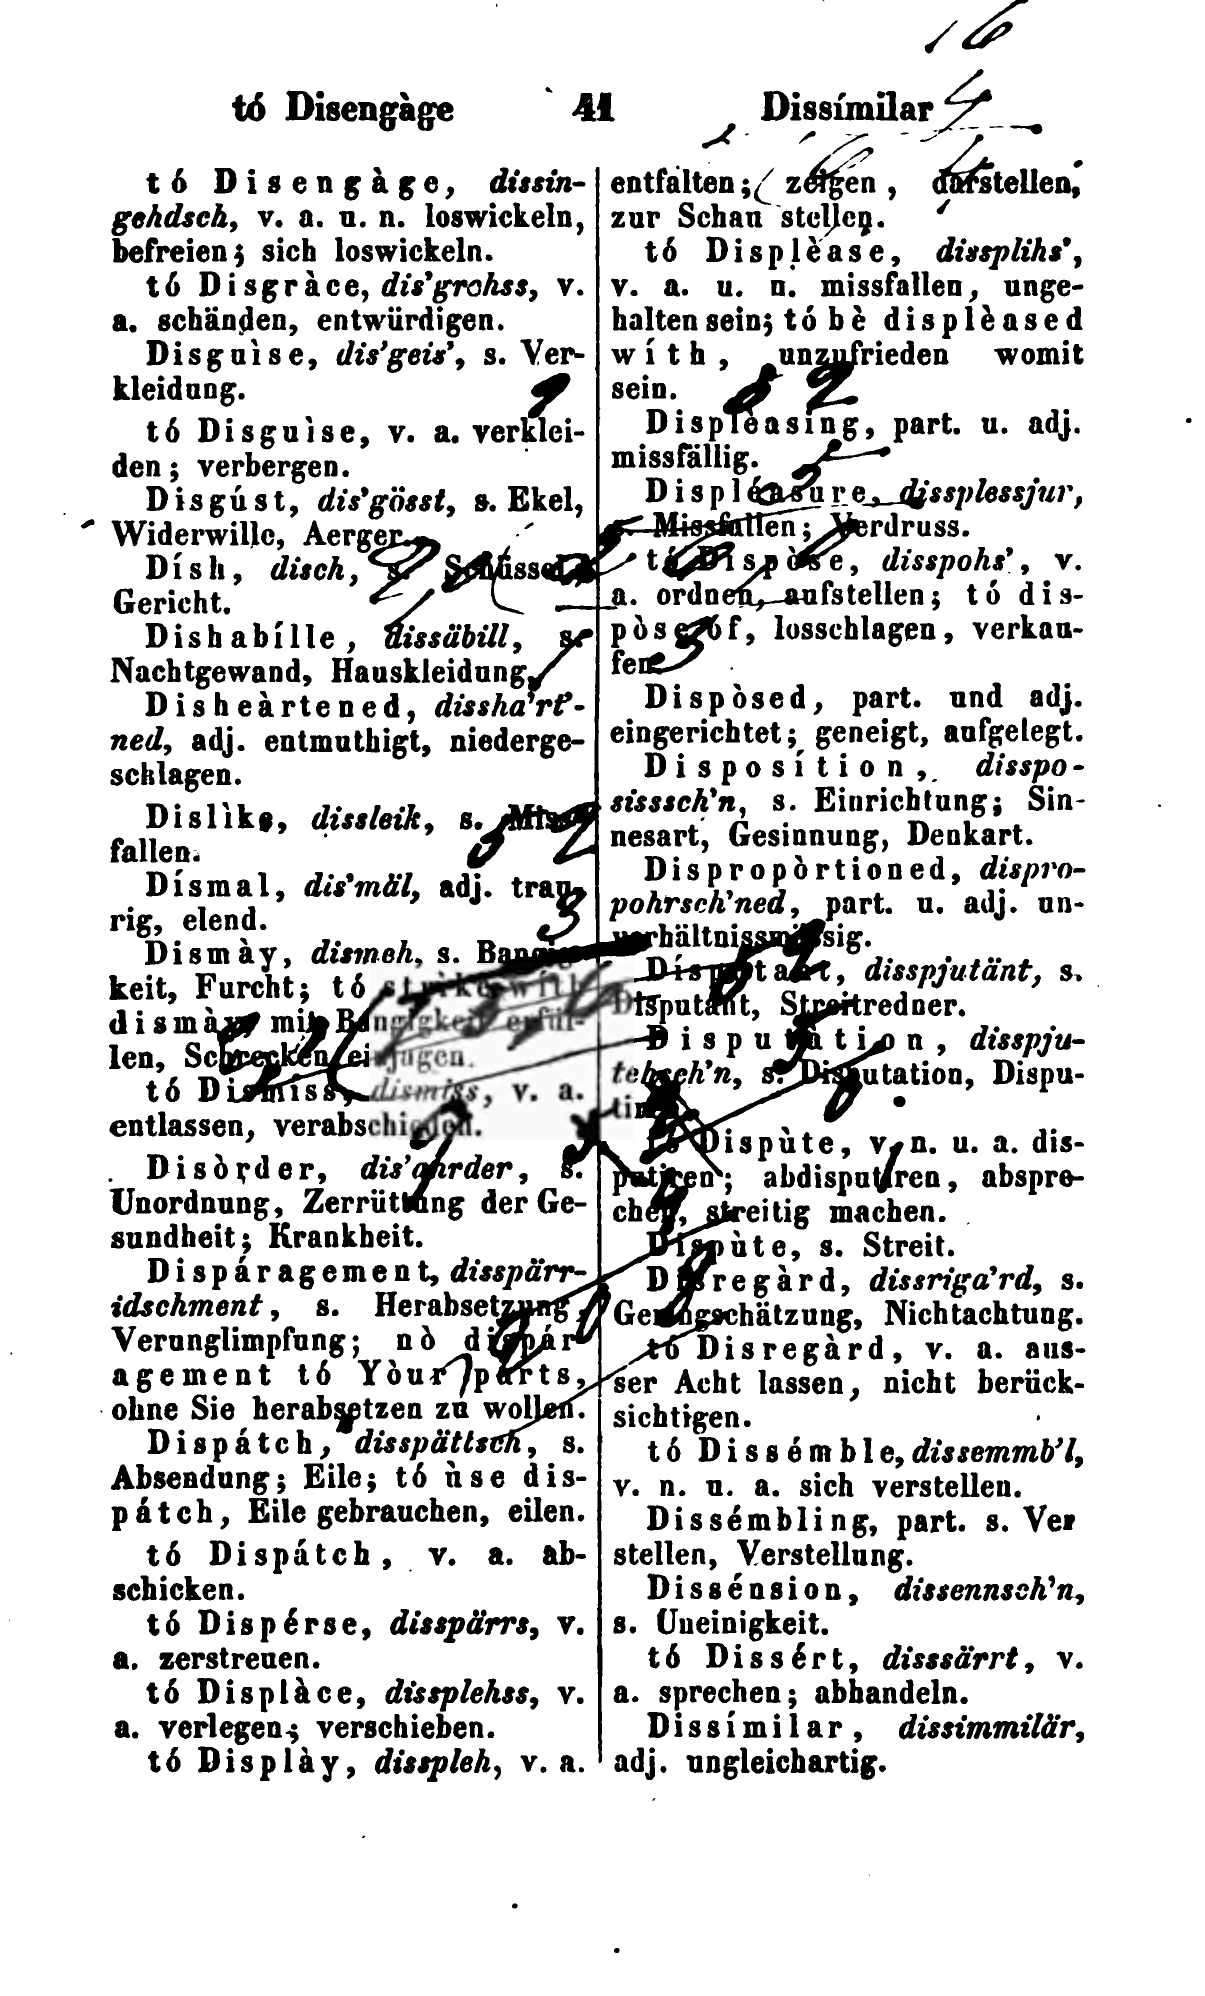 tó Disengàge 41 Dissímilar
tó Disengàge, dissin-
gehdsch, v. a. u. n. loswickeln,
befreien; sich loswickeln.
tó Disgràce, dis'grohss, v.
a. schänden, entwürdigen.
Disguìse, dis'geis', s. Ver-
kleidung.
tó Disguìse, v. a. verklei-
den; verbergen.
Disgúst, dis'gösst, s. Ekel,
Widerwille, Aerger.
Dísh, disch, s. Schüssel,
Gericht.
Dishabílle, dissäbill, s.
Nachtgewand, Hauskleidung.
Disheàrtened, dissha'rt'-
ned, adj. entmuthigt, niederge-
schlagen.
Dislìke, dissleik, s. Miss-
fallen.
Dísmal, dis'mäl, adj. trau-
rig, elend.
Dismày, dismeh, s. Bangig-
keit, Furcht; tó strìke wíth
dismày, mit Bangigkeit erfül-
len, Schrecken einjagen.
tó Dismiss, dismiss, v. a.
entlassen, verabschieden.
Disòrder, dis'ahrder, s.
Unordnung, Zerrüttung der Ge-
sundheit; Krankheit.
Dispáragement, disspärr-
idschment, s. Herabsetzung,
Verunglimpfung; nò dispár-
agement tó Yòur parts,
ohne Sie herabsetzen zu wollen.
Dispátch, disspättsch, s.
Absendung; Eile; tó ùse dis-
pátch, Eile gebrauchen, eilen.
tó Dispátch, v. a. ab-
schicken.
tó Dispérse, disspärrs, v.
a. zerstreuen.
tó Displàce, dissplehss, v.
a. verlegen; verschieben.
tó Displày, disspleh, v. a.
entfalten; zeigen, darstellen,
zur Schau stellen.
tó Displèase, dissplihs',
v. a. u. n. missfallen, unge-
halten sein; tó bè displèased
wíth, unzufrieden womit
sein.
Displèasing, part. u. adj.
missfällig.
Displéasure, dissplessjur,
s. Missfallen; Verdruss.
tó Dispòse, disspohs', v.
a. ordnen, aufstellen; tó dis-
pòse óf, losschlagen, verkau-
fen.
Dispòsed, part. und adj.
eingerichtet; geneigt, aufgelegt.
Disposítion, disspo-
sisssch'n, s. Einrichtung; Sin-
nesart, Gesinnung, Denkart.
Dispropòrtioned, dispro-
pohrsch'ned, part. u. adj. un-
verhältnissmässig.
Dísputant, disspjutänt, s.
Disputant, Streitredner.
Disputàtion, disspju-
tehsch'n, s. Disputation, Dispu-
tó Dispùte, v. n. u. a. dis-
putiren; abdisputiren, abspre-
chen, streitig machen.
Dispùte, s. Streit.
Disregàrd, dissriga'rd, s.
Geringschätzung, Nichtachtung.
tó Disregàrd, v. a. aus-
ser Acht lassen, nicht berück-
sichtigen.
tó Dissémble, dissemmb'l,
v. n. u. a. sich verstellen.
Dissémbling, part. s. Ver
stellen, Verstellung.
Dissénsion, dissennsch'n,
s. Uneinigkeit.
tó Dissért, disssärrt, v.
a. sprechen; abhandeln.
Dissímilar, dissimmilär,
adj. ungleichartig.